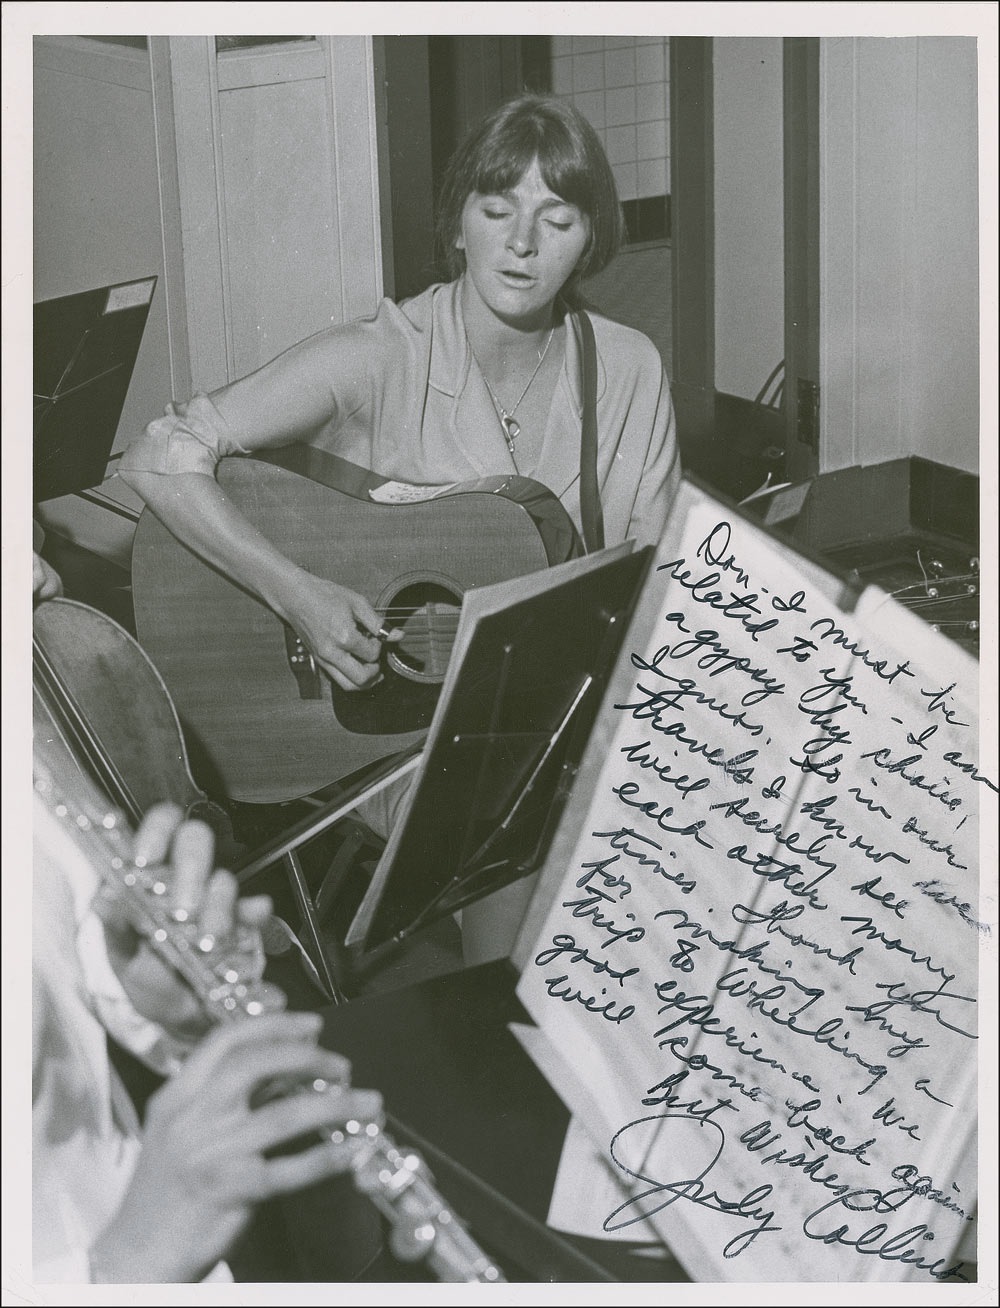 Don - I must be
related to you - I am
a gypsy by choice,
I guess. So in our
travels I know we
will surely see
each other many
times. Thank you
for making my
trip to Wheeling a
good experience. We
will come back again.
Best Wishes
Judy Collins